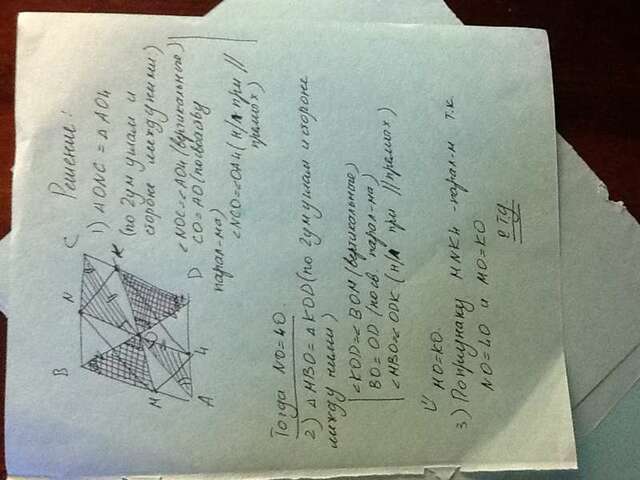 Решение:
B N C
M O K
A L D
1) △ONC = △AOL
(по 2ум углам и
стороне между ними)
<NOC=<AOL (вертикального)
CO=AO (по свойству
парал-ма)
<NCO=<OAL (н/л при ||
прямых)
Тогда NO=LO.
2) △MBO=△KOD (по 2ум углам и стороне
между ними)
<KOD=<BOM (вертикального)
BO=OD (по св. парал-ма)
<MBO=<ODK (н/л при || прямых)
MO=KO.
3) По признаку MNKL -парал-м т.к.
NO=LO и MO=KO
чтд